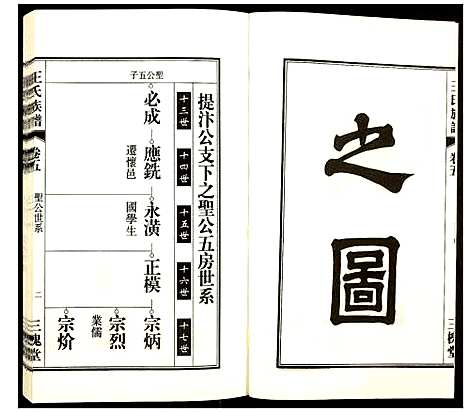 王氏族譜
卷五
三槐堂
之圖
提汴公支下之聖公五房世系
十三世
十四世
十五世
十六世
十七世
聖公五子
必成
應銑
遷懷邑
永潢
國學生
正模
宗炳
宗烈
業儒
宗炌
王氏族譜
卷五
聖公世系
二
三槐堂